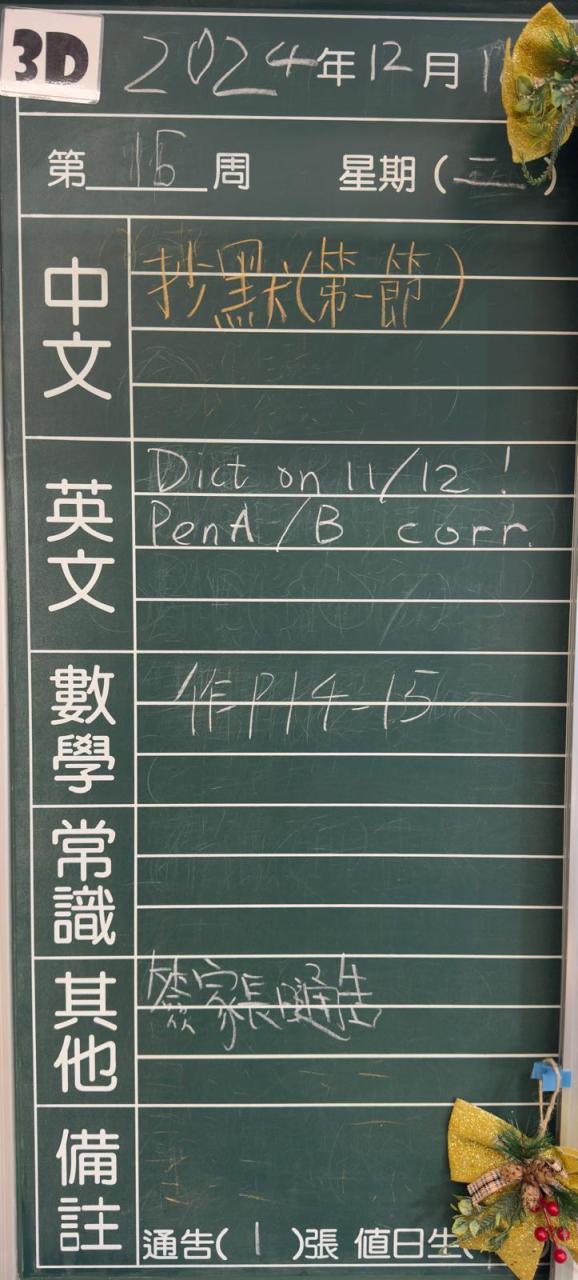 3D
2024年12月
第15周 星期(二)
中文
抄默(第一節)
英文
Dict on 11/12 !
PenA/B corr.
數學
作P14-15
常識
其他
簽家長通告
備註
通告(1)張 值日生(